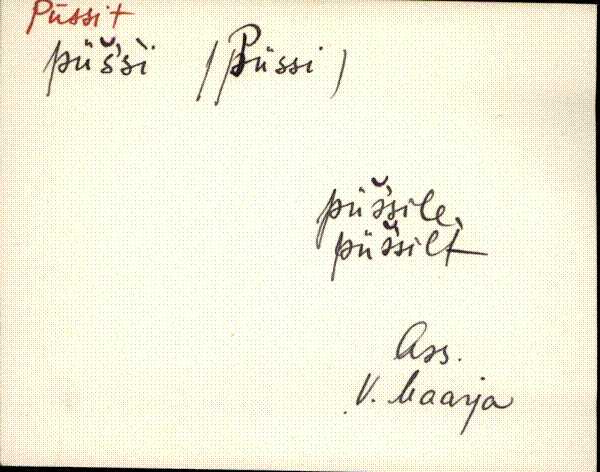 Püssit
püš́sì̮ (Püssi)
püš́sile,
püš́silt
Ass.
V. Maarja